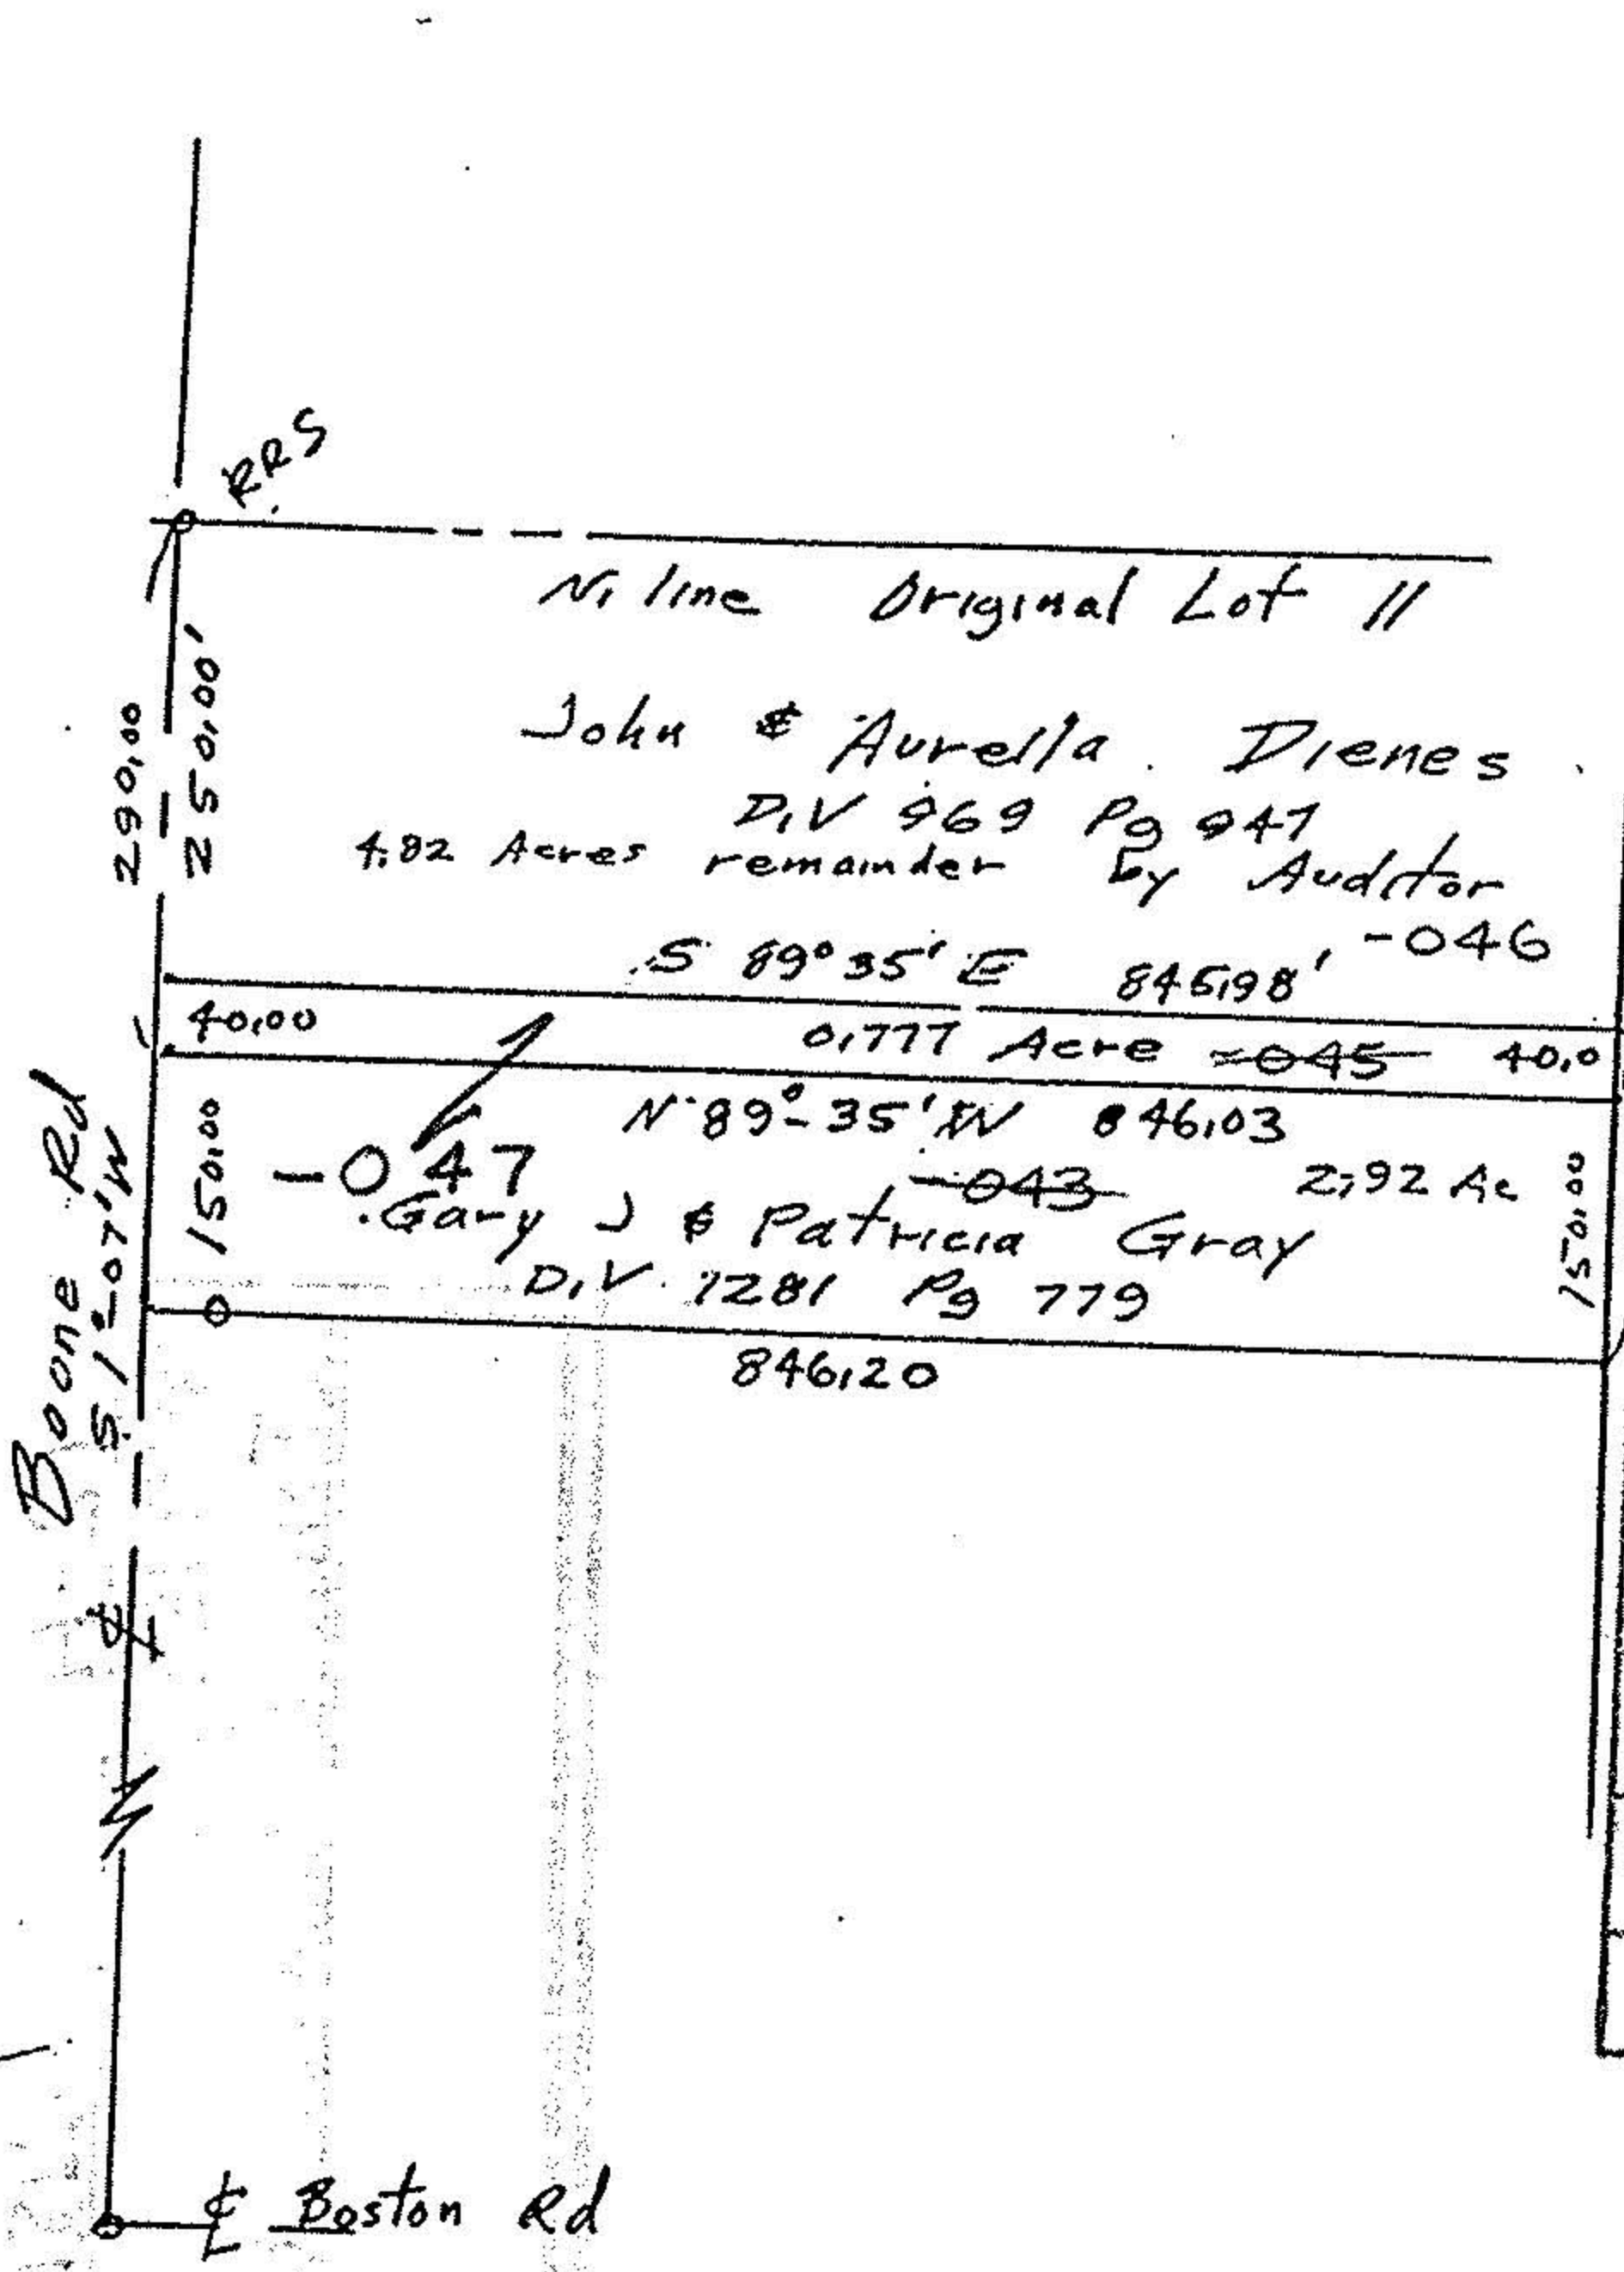 RRS
N. line Original Lot 11
290.00
250.00'
John & Aurella Dienes
D.V 969 Pg 947
4.82 Acres remainder by Auditor
-046
S 89° 35' E 845.98'
40.00
0.777 Acre -045 40.0
N 89°-35' W 846.03
-047
-043
2.92 Ac
150.00
150.00
Gary J & Patricia Gray
D.V. 1281 Pg 779
846.20
Boone Rd
S 1°-07' W
℄
℄ Boston Rd